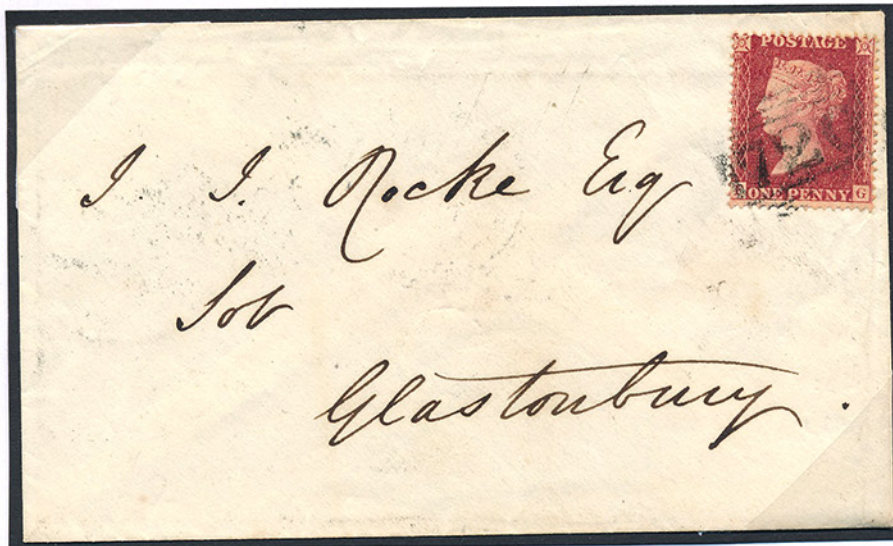 POSTAGE
ONE PENNY G
J. J. Rocke Esq
Solr
Glastonbury.